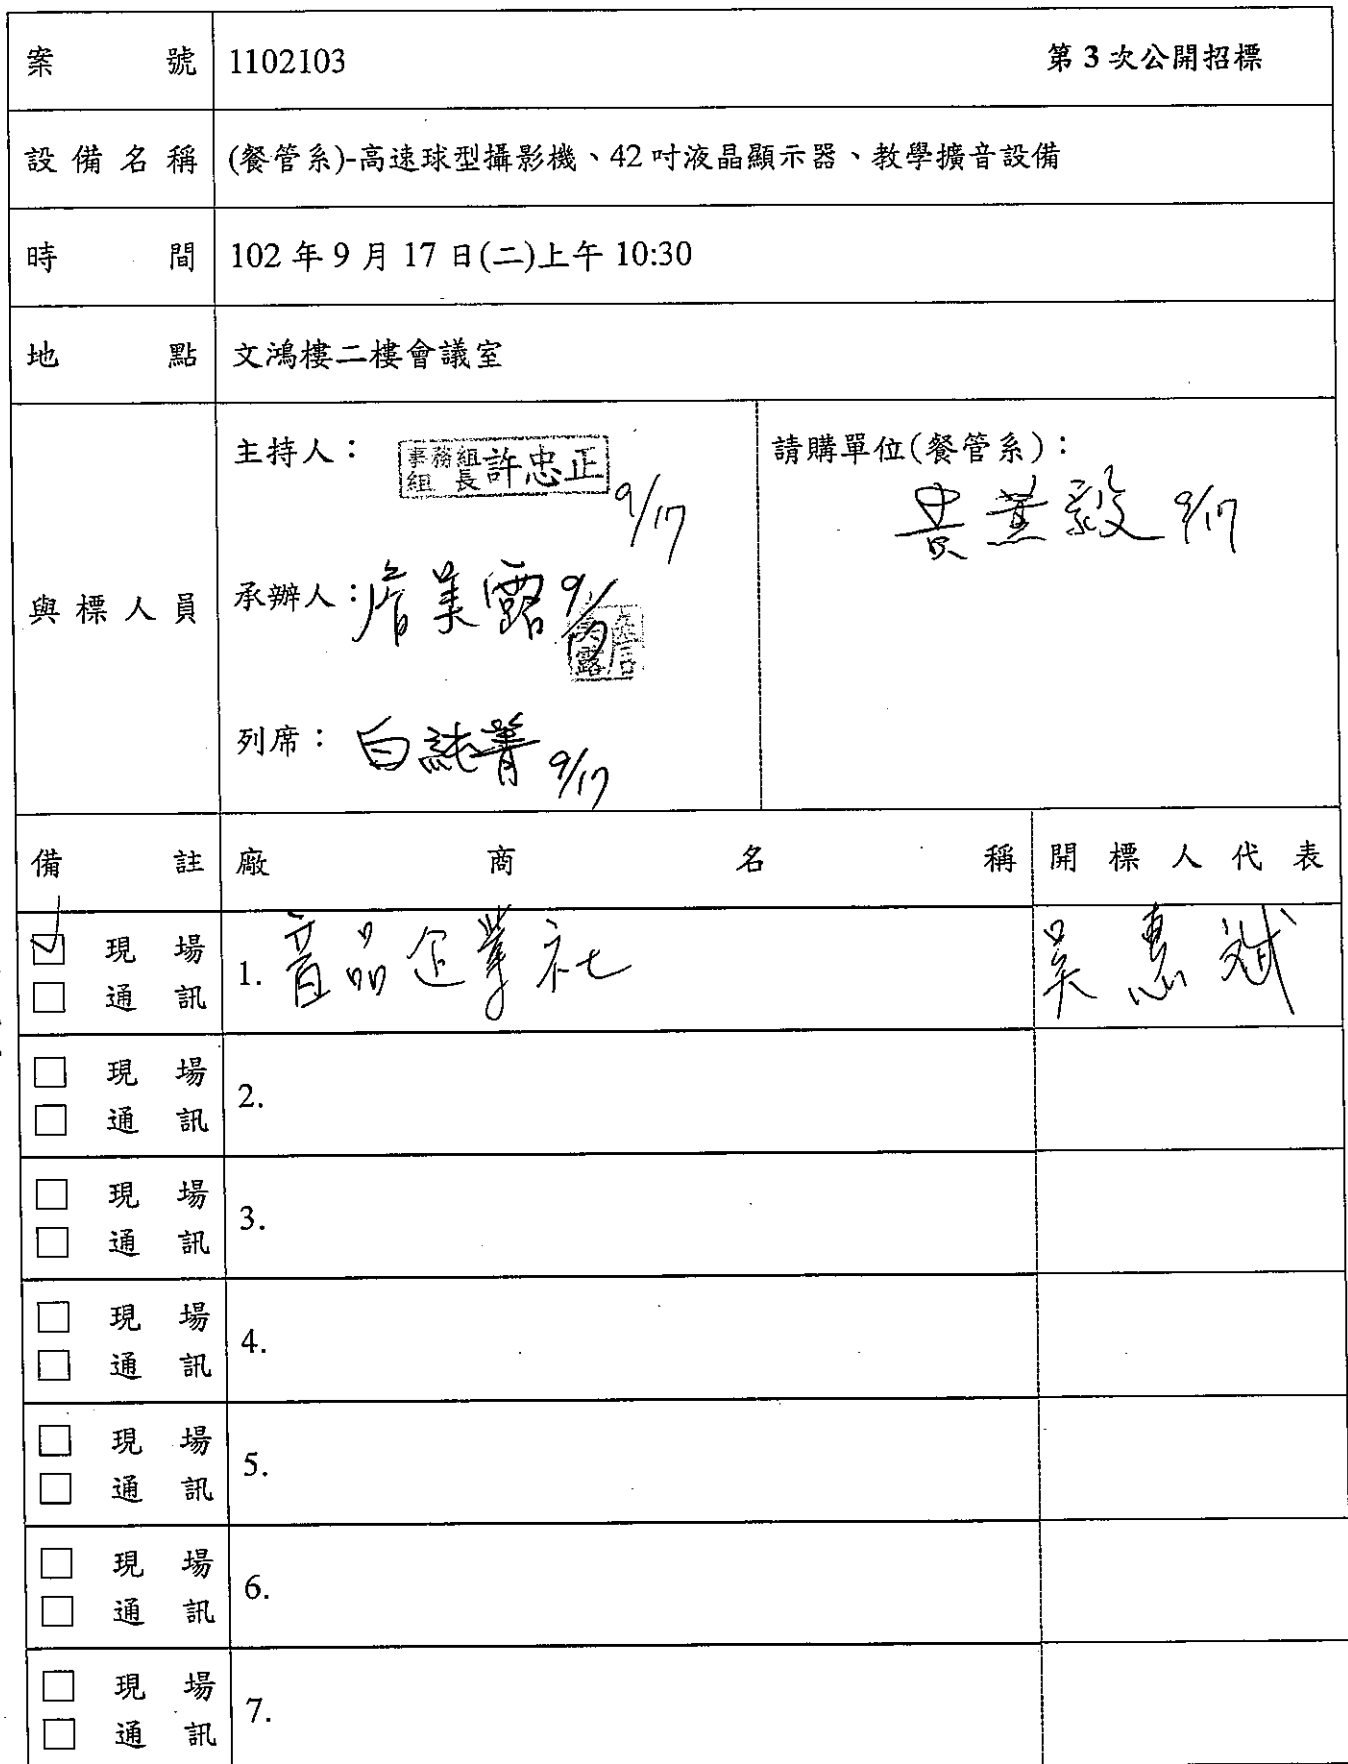 案號 1102103 第3次公開招標
設備名稱 (餐管系)-高速球型攝影機、42吋液晶顯示器、教學擴音設備
時間 102年9月17日(二)上午10:30
地點 文鴻樓二樓會議室
與標人員
主持人： 事務組組長 許忠正 9/17
承辦人： 詹美露 9/17
列席： 白純菁 9/17
請購單位(餐管系)：
9/17
備註 廠商名稱 開標人代表
☑ 現場 1. 音品企業社 吳惠斌
□ 通訊
□ 現場 2.
□ 通訊
□ 現場 3.
□ 通訊
□ 現場 4.
□ 通訊
□ 現場 5.
□ 通訊
□ 現場 6.
□ 通訊
□ 現場 7.
□ 通訊